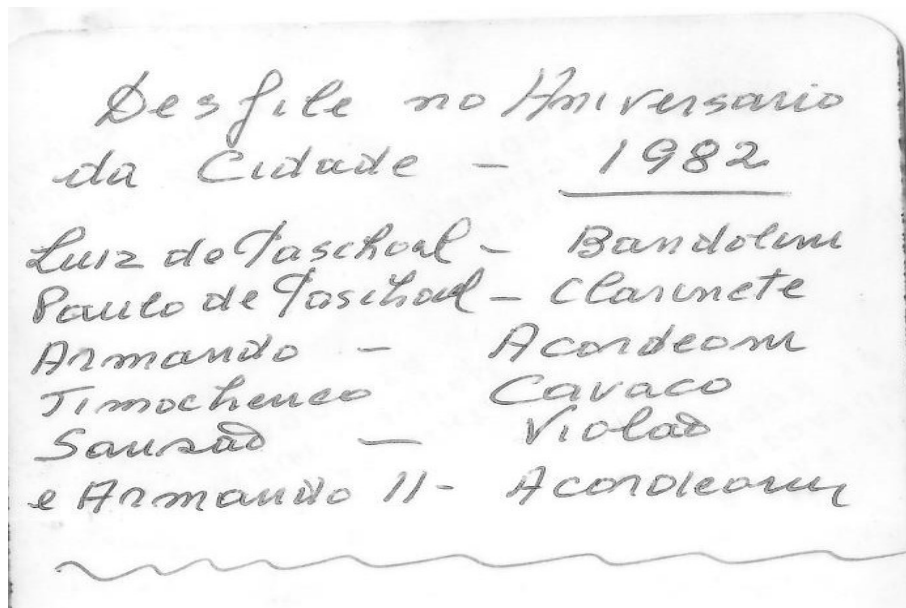 Desfile no Aniversario
da Cidade - 1982
Luiz de Paschoal - Bandolim
Paulo de Paschoal - Clarinete
Armando - Acordeom
Timochenco Cavaco
Sansão - Violão
e Armando II - Acordeom